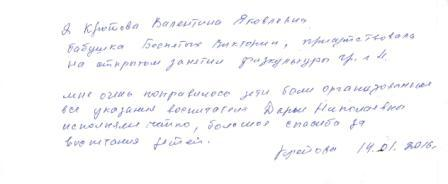 Я Кротова Валентина Яковлевна
бабушка Беспятых Виктории, присутствовала
на открытом занятии физкультуры гр. № 4.
мне очень понравилось дети были организованные
все указания воспитателя Дарьи Николаевны
исполняли чётко, большое спасибо за
воспитания детей.
Кротова 14.01.2016г.